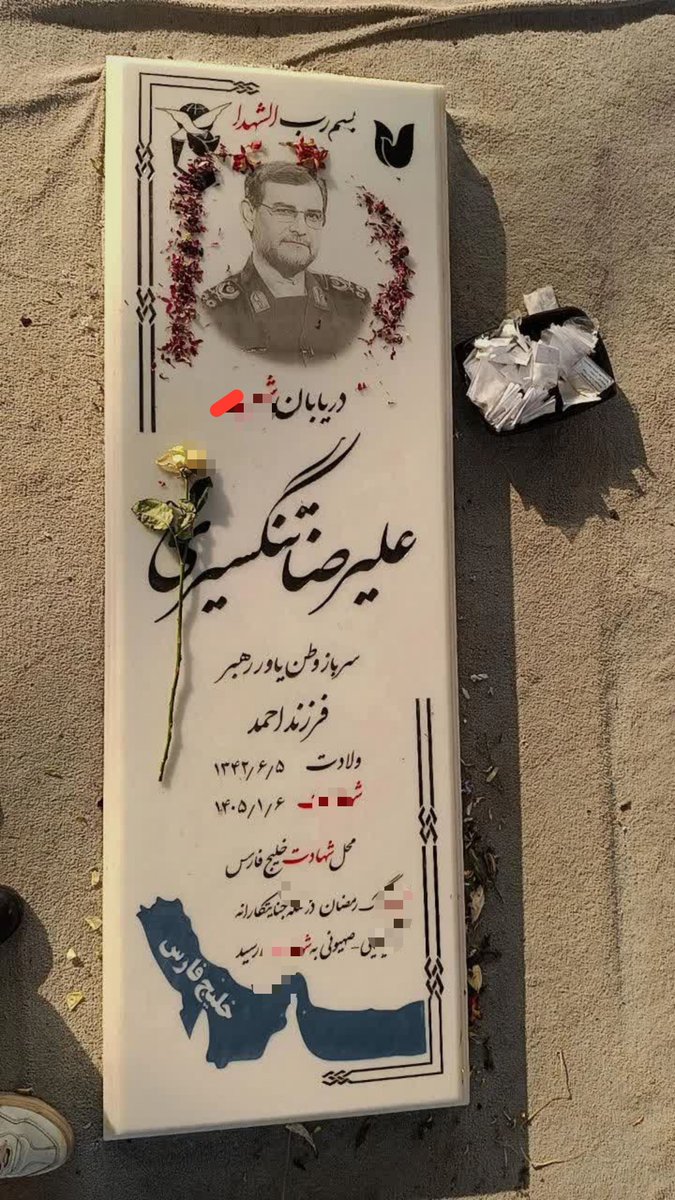 بسم رب الشهدا
دریابان
علیرضا تنگسیری
سرباز وطن یاور رهبر
فرزند احمد
ولادت ۱۳۴۲/۶/۵
۱۴۰۵/۱/۶
محل شهادت خلیج فارس
رمضان در حمله جنایتکارانه
صهیونی به رسید
خلیج فارس